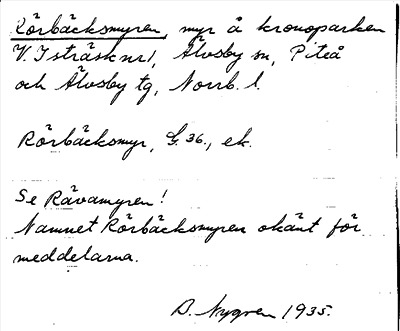 Rörbäcksmyren, myr å kronoparken
V. Isträsk nr 1, Älvsby sn, Piteå
och Älvsby tg, Norrb. l.
Rörbäcksmyr, G. 36., ek.
Se Rävamyren!
Namnet Rörbäcksmyren okänt för
meddelarna.
D. Nygren 1935.